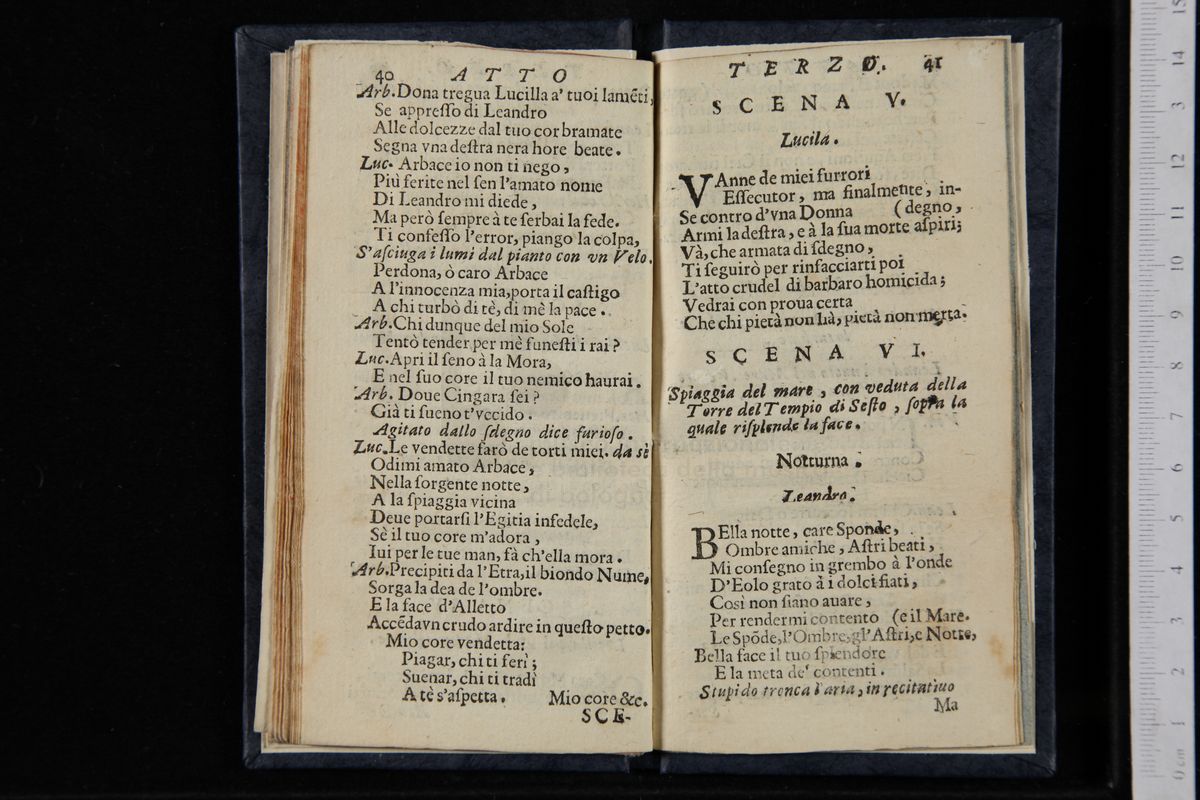 40 ATTO
Arb. Dona tregua Lucilla a' tuoi lamẽti,
Se appreſſo di Leandro
Alle dolcezze dal tuo cor bramate
Segna vna deſtra nera hore beate.
Luc. Arbace io non ti nego,
Più ferite nel ſen l'amato nome
Di Leandro mi diede,
Ma però ſempre à te ſerbai la fede.
Ti confeſſo l'error, piango la colpa,
S'aſciuga i lumi dal pianto con vn Velo.
Perdona, ò caro Arbace
A l'innocenza mia, porta il caſtigo
A chi turbò di tè, di mè la pace.
Arb. Chi dunque del mio Sole
Tentò tender per mè funeſti i rai?
Luc. Apri il ſeno à la Mora,
E nel ſuo core il tuo nemico haurai.
Arb. Doue Cingara ſei?
Già ti ſueno t'vccido.
Agitato dallo ſdegno dice furioſo.
Luc. Le vendette farò de torti miei. da sè
Odimi amato Arbace,
Nella ſorgente notte,
A la ſpiaggia vicina
Deue portarſi l'Egitia infedele,
Sè il tuo core m'adora,
Iui per le tue man, fà ch'ella mora.
Arb. Precipiti da l'Etra, il biondo Nume,
Sorga la dea de l'ombre.
E la face d'Alletto
Accẽda vn crudo ardire in queſto petto.
Mio core vendetta:
Piagar, chi ti ferì;
Suenar, chi ti tradì
A tè s'aſpetta. Mio core &c.
SCE-
TERZO. 41
SCENA V.
Lucila.
VAnne de miei furrori
Eſſecutor, ma finalmente, in-
Se contro d'vna Donna (degno,
Armi la deſtra, e à la ſua morte aſpiri;
Và, che armata di ſdegno,
Ti ſeguirò per rinfacciarti poi
L'atto crudel di barbaro homicida;
Vedrai con proua certa
Che chi pietà non hà, pietà non merta.
SCENA VI.
Spiaggia del mare, con veduta della
Torre del Tempio di Seſto, ſopra la
quale riſplende la face.
Notturna.
Leandro.
BElla notte, care Sponde,
Ombre amiche, Aſtri beati,
Mi conſegno in grembo à l'onde
D'Eolo grato à i dolci fiati,
Così non ſiano auare,
Per rendermi contento (e il Mare.
Le Spõde, l'Ombre, gl'Aſtri, e Notte,
Bella face il tuo ſplendore
E la meta de' contenti.
Stupido tronca l'aria, in recitatiuo
Ma